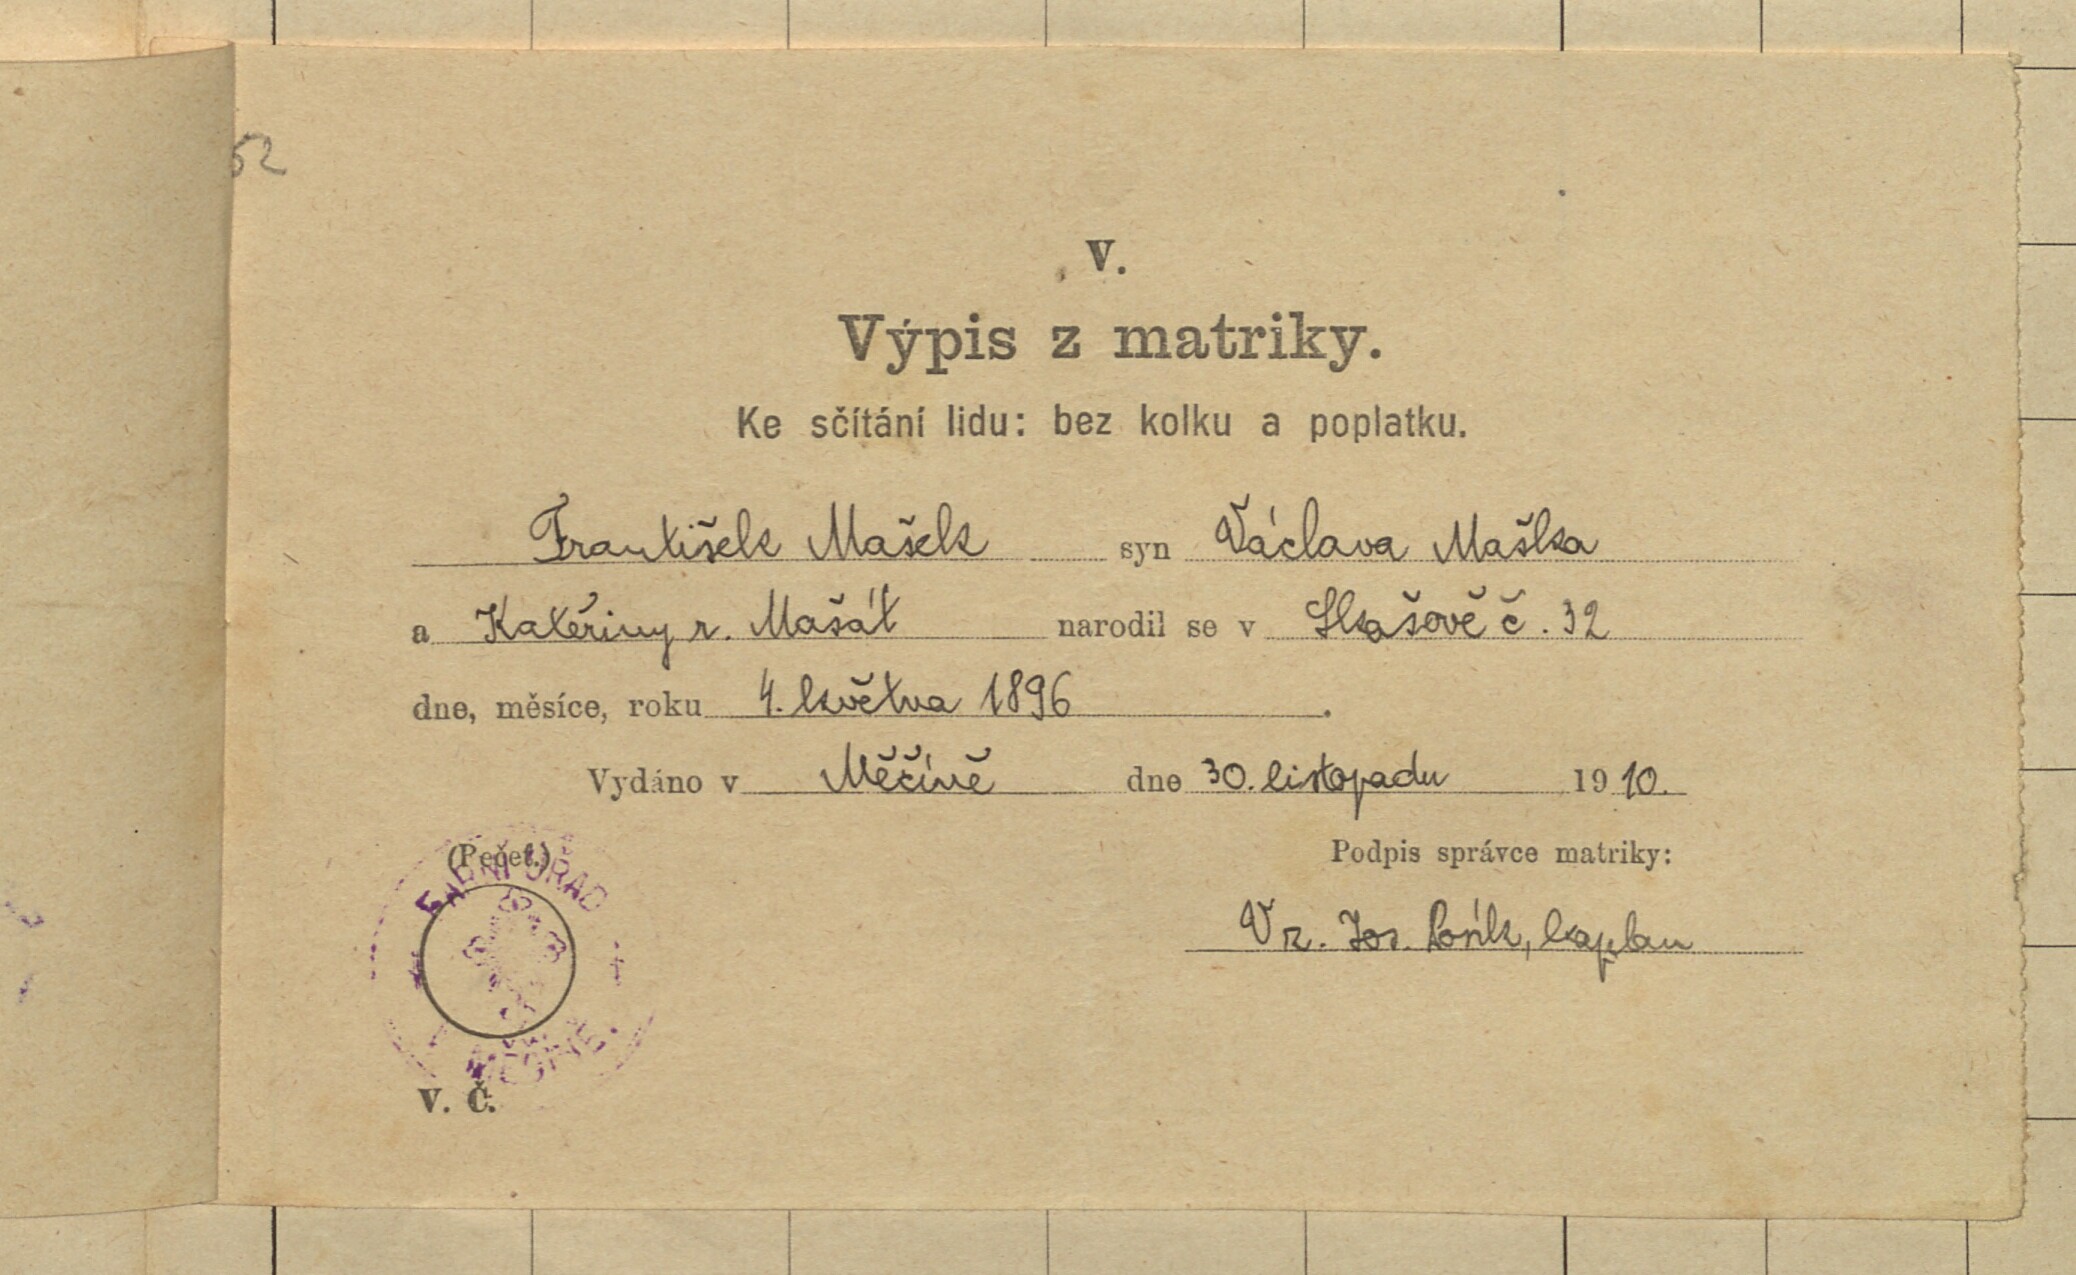 52
V.
Výpis z matriky.
Ke sčítání lidu: bez kolku a poplatku.
František Mašek syn Václava Maška
a Kateřiny r. Mašát narodil se v Skašově č. 32
dne, měsíce, roku 4. května 1896.
Vydáno v Měčíně dne 30. listopadu 1910.
(Pečeť.) Podpis správce matriky:
FARNÍ ÚŘAD
Jos. kaplan
V. Č.